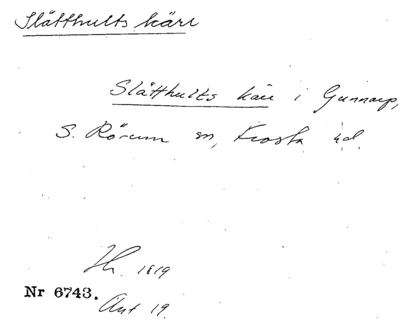 Slätthults kärr
Slätthults kärr i Gunnarp,
S. Rörum sn, Frosta hd.
Hr. 1819
Nr 6743.
Akt 19.